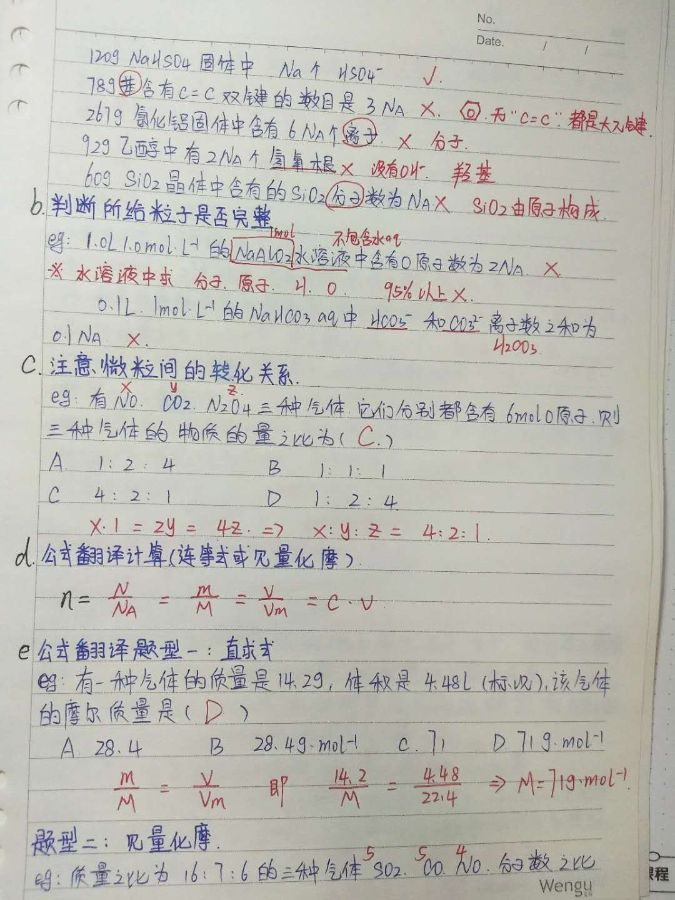 No.
Date. / /
120g NaHSO4 固体中 Na个 HSO4⁻ ✓.
78g 苯含有C=C双键的数目是3NA ×. 无"C=C".都是大π键.
267g 氯化铝固体中含有6NA个离子. × 分子.
92g 乙醇中有2NA个氢氧根 × 没有OH⁻ 羟基
60g SiO2晶体中含有的SiO2分子数为NA × SiO2由原子构成.
b. 判断所给粒子是否完整
1mol 不包含水aq
eg: 1.0L 1.0mol·L⁻¹ 的 NaAlO2 水溶液中含有O原子数为2NA. ×
※ 水溶液中求 分子. 原子. H. O. 95%以上×.
0.1L. 1mol·L⁻¹的NaHCO3 aq中 HCO3⁻ 和CO3²⁻ 离子数之和为
0.1NA ×. H2CO3
C. 注意微粒间的转化关系.
x y z
eg: 有NO. CO2. N2O4三种气体.它们分别都含有6molO原子.则
三种气体的物质的量之比为( C. )
A 1:2:4 B 1:1:1
C 4:2:1 D 1:2:4
x·1 = 2y = 4z. => x:y:z = 4:2:1.
d. 公式翻译计算(连等式或见量化摩)
n = N/NA = m/M = V/Vm = C·V
e 公式翻译题型一:直求式
eg: 有一种气体的质量是14.2g, 体积是4.48L(标况),该气体
的摩尔质量是( D )
A 28.4 B 28.4g·mol⁻¹ C. 71 D 71g·mol⁻¹
m/M = V/Vm 即 14.2/M = 4.48/22.4 => M=71g·mol⁻¹.
题型二: 见量化摩.
5 5 4
eg:质量之比为16:7:6的三种气体 SO2. CO. NO. 分子数之比
Wengu
课程